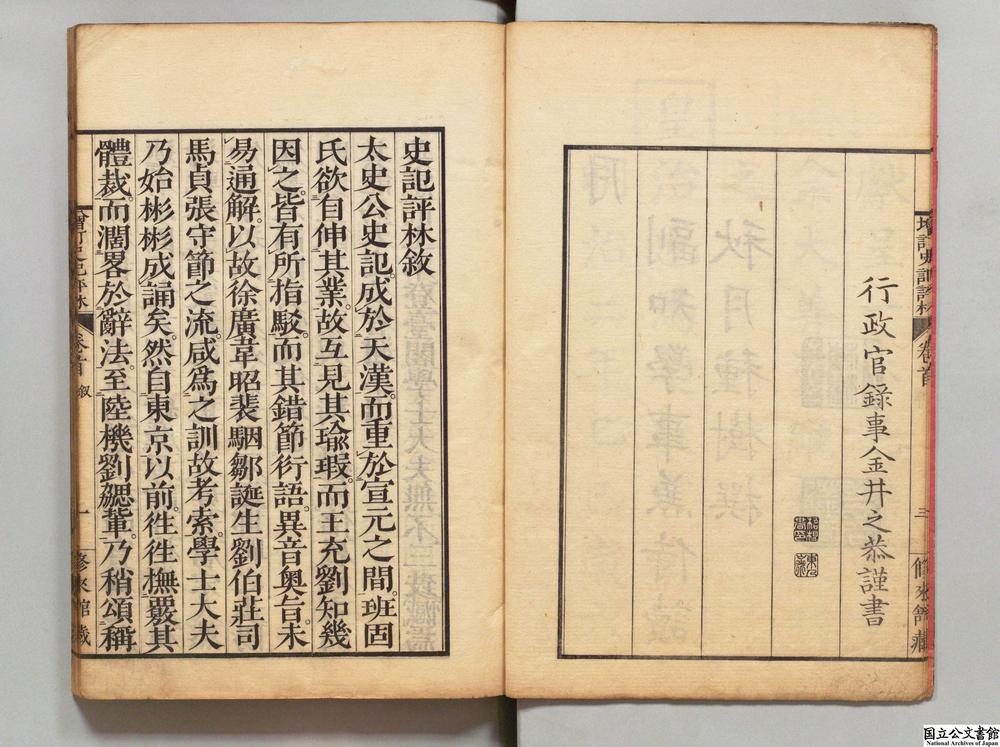 行政官錄事金井之恭謹書
增訂史記評林
卷首
三
修來館藏
史記評林敘
太史公史記。成於天漢。而重於宣元之間。班固
氏欲自伸其業。故互見其瑜瑕。而王充劉知幾
因之。皆有所指駁。而其錯節衍語。異音奧旨。未
易通解。以故徐廣韋昭裴駰鄒誕生劉伯莊司
馬貞張守節之流。咸爲之訓故考索。學士大夫
乃始彬彬成誦矣。然自東京以前。徃徃橅蓺其
體裁。而濶畧於辭法。至陸機劉勰輩。乃稍頌稱
增訂史記評林
卷首
叙
一
修來館藏
国立公文書館
National Archives of Japan